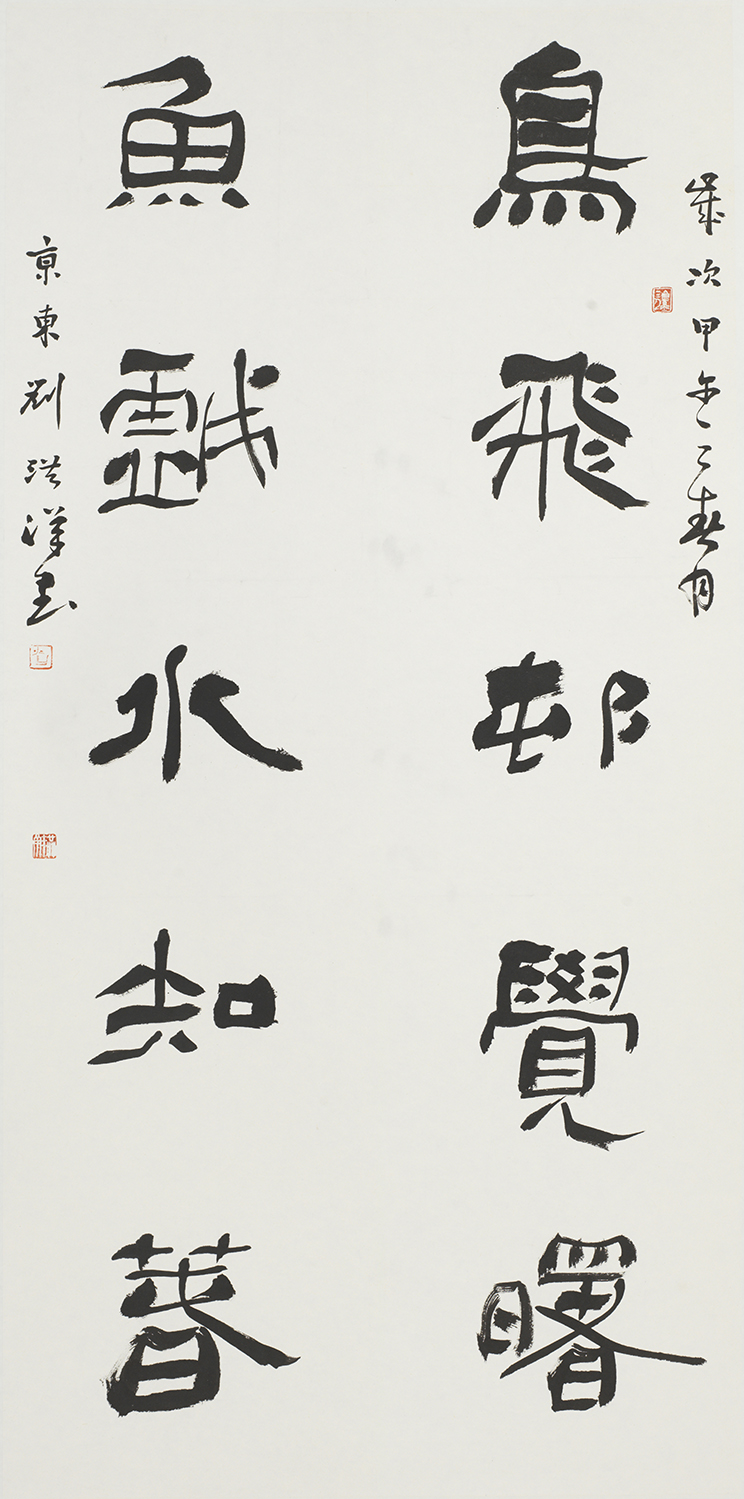 歲次甲午之春月
鳥飛邨覺曙
魚戲水知萅
京東劉洪洋書